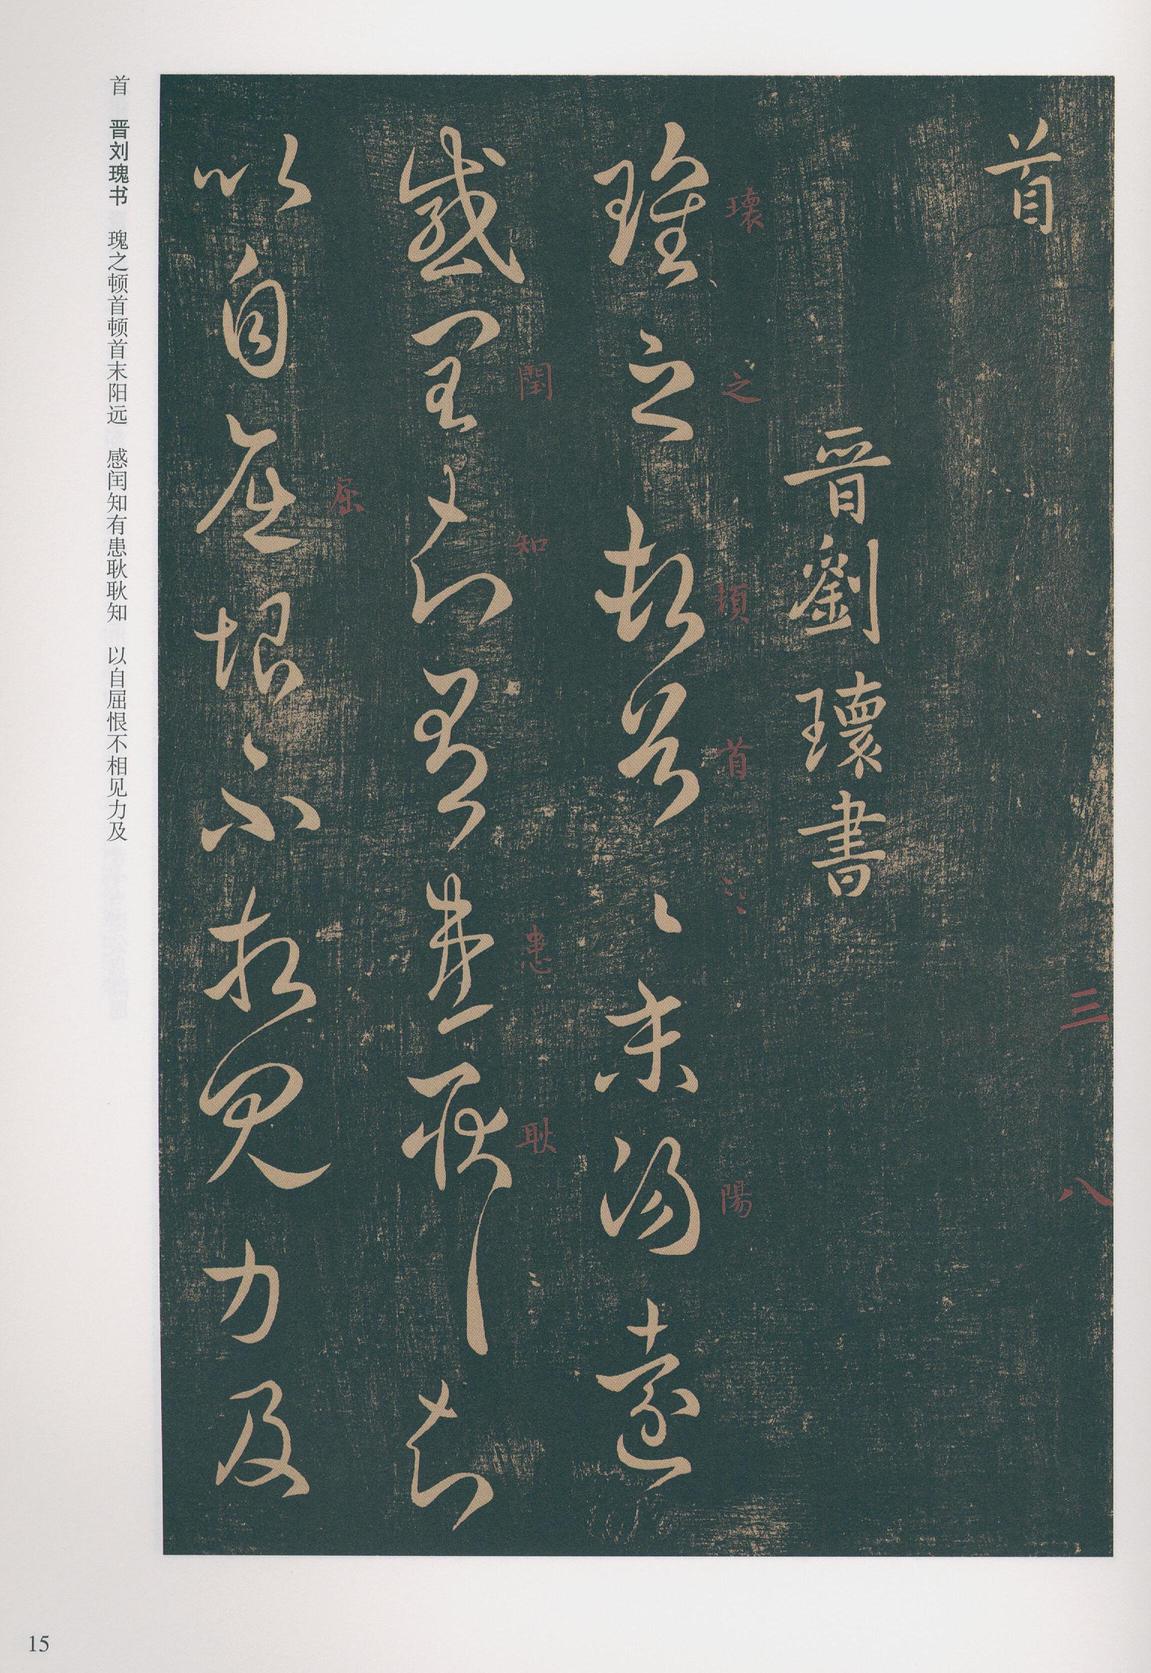 三八
首
晋劉瓌書
瓌之頓首〻
瓌之頓首〻末陽遠
陽
閏知患耿〻
感閏知有患耿〻知
屈
以自屈恨不相見力及
首 晋刘瑰书 瑰之顿首顿首末阳远 感闰知有患耿耿知 以自屈恨不相见力及
15